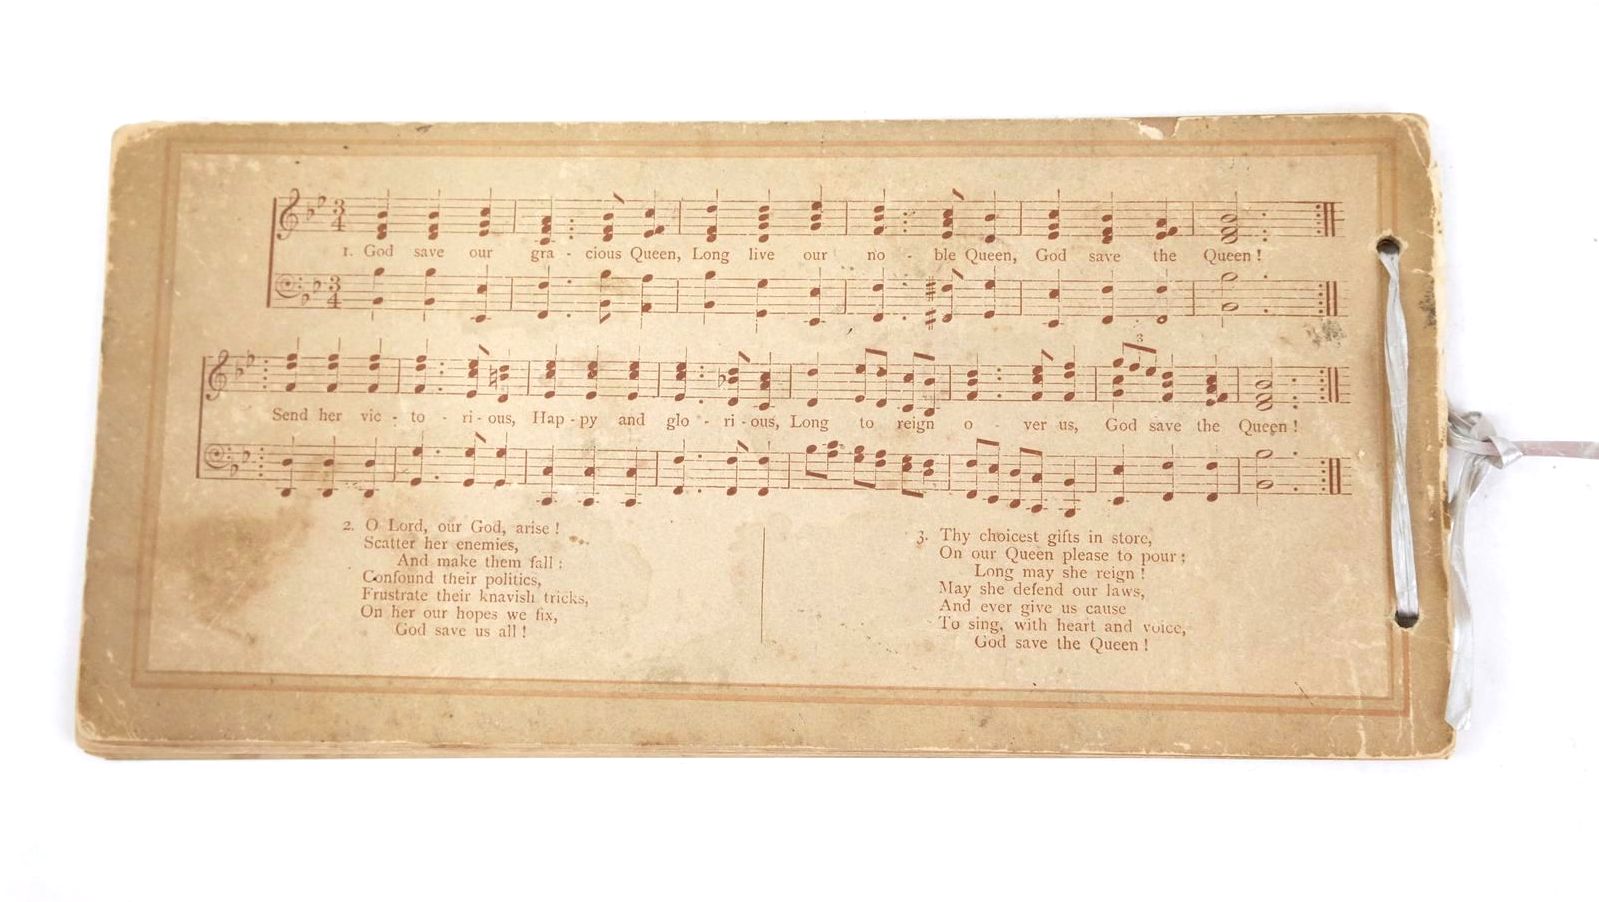 1. God save our gra - cious Queen, Long live our no - ble Queen, God save the Queen !
3
Send her vic - to - ri - ous, Hap - py and glo - ri - ous, Long to reign o - ver us, God save the Queen !
2. O Lord, our God, arise !
Scatter her enemies,
And make them fall :
Confound their politics,
Frustrate their knavish tricks,
On her our hopes we fix,
God save us all !
3. Thy choicest gifts in store,
On our Queen please to pour ;
Long may she reign !
May she defend our laws,
And ever give us cause
To sing, with heart and voice,
God save the Queen !